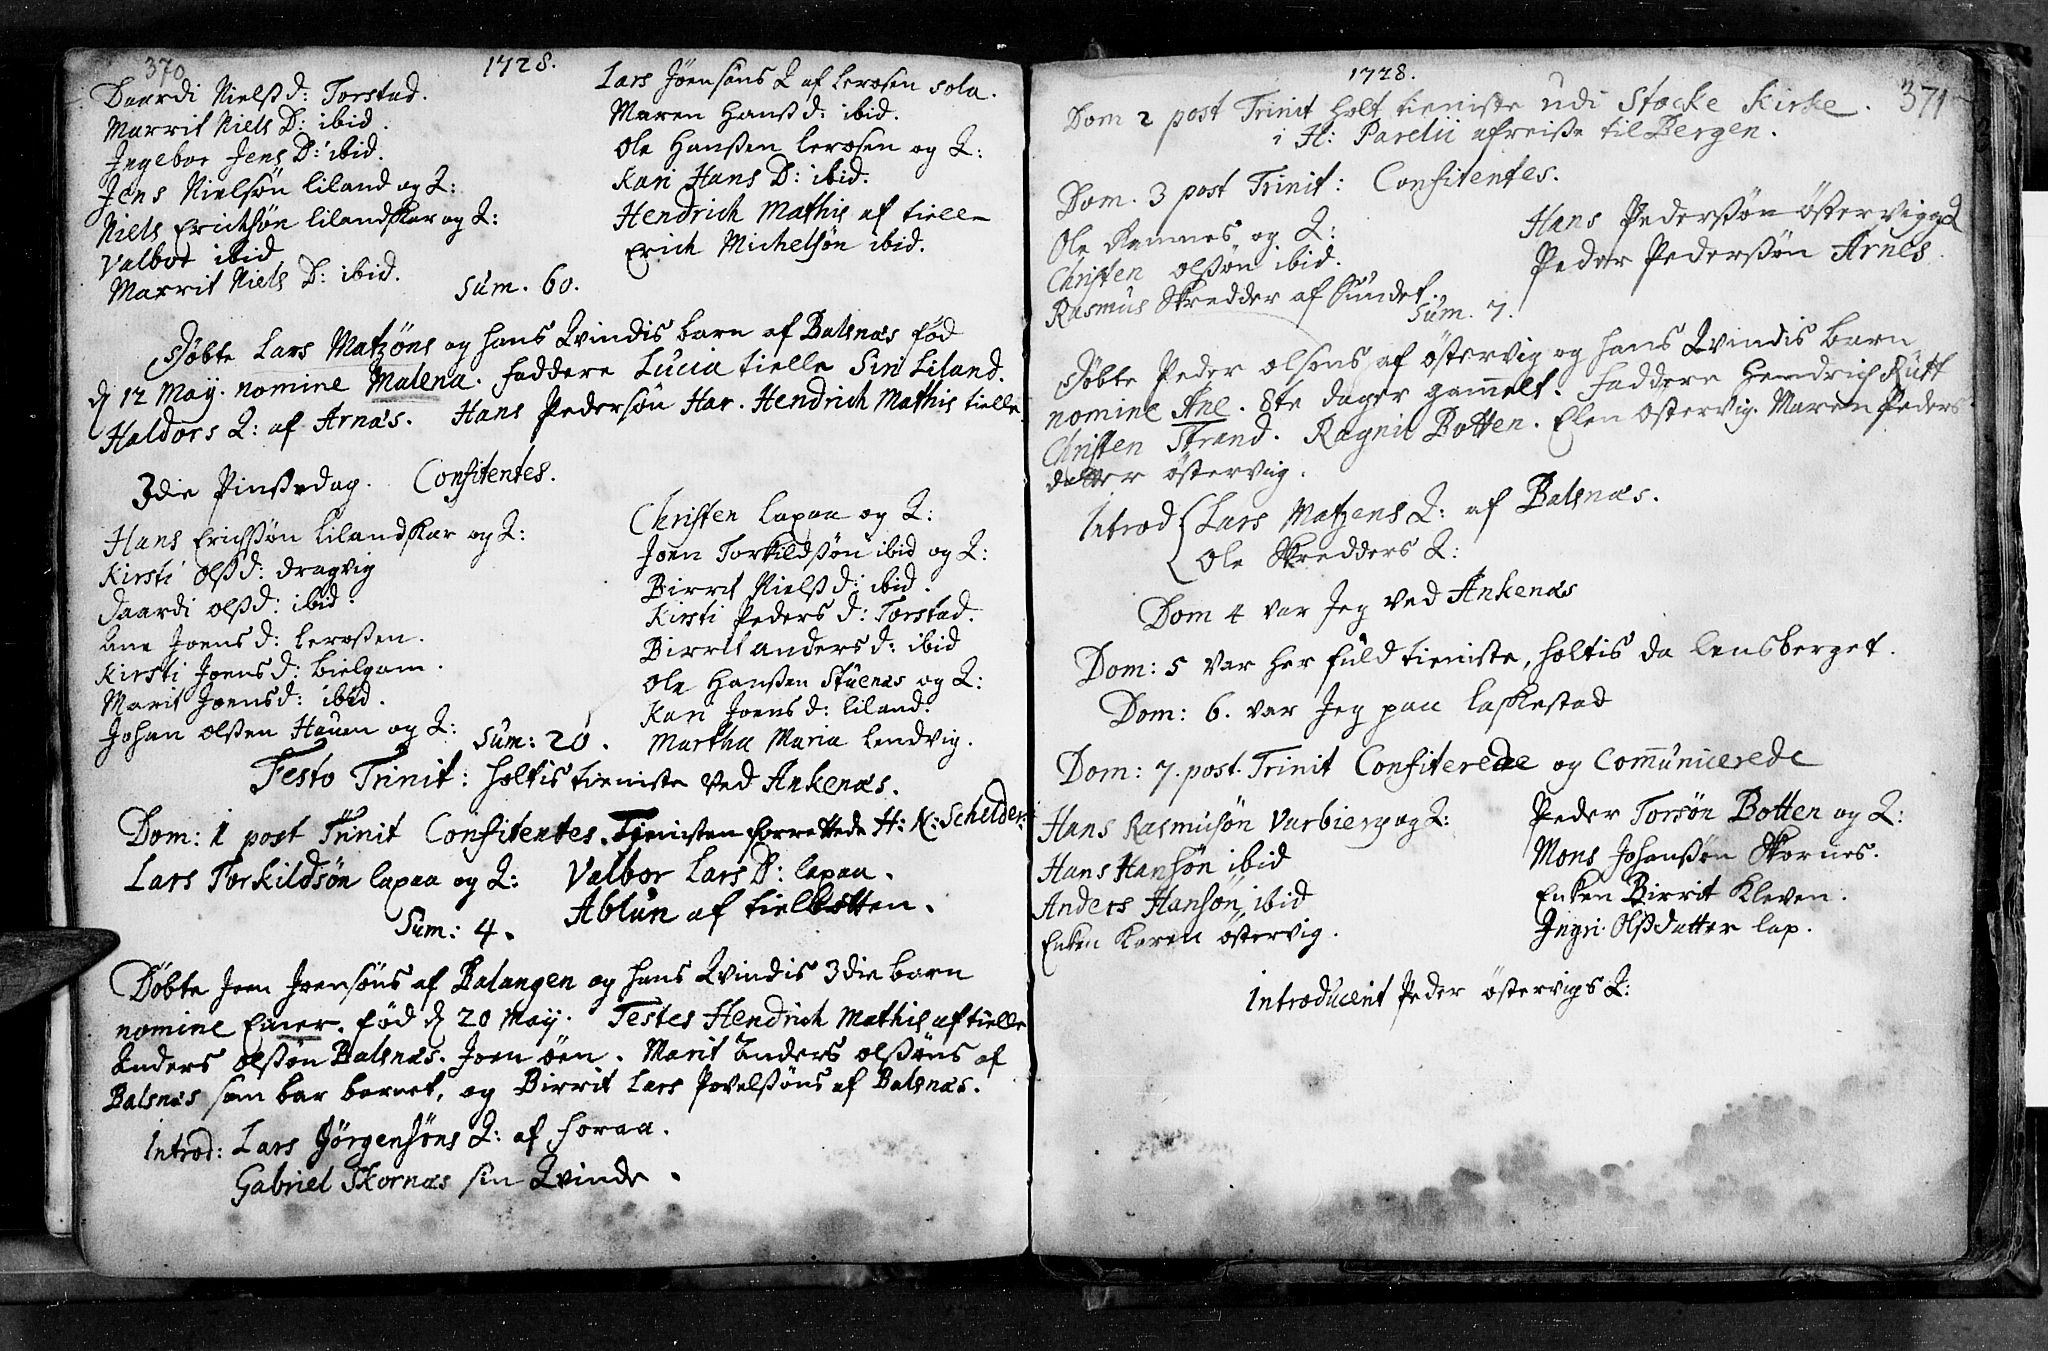 370
1728.
Daardi Nielsd: Torstad.
Marrit Niels D: ibid.
Ingebor Jens D: ibid.
Jens Nielsøn Liland og Q:
Niels Erichsøn Lilandskar og Q:
Valbor ibid
Marrit Niels D: ibid.
Lars Jöensöns Q af Lerosen sola.
Maren Hansd: ibid.
Ole Hanßen Lerosen og Q:
Kari Hans D: ibid.
Hendrich Mathis af tielle
Erich Michelsøn ibid.
Sum. 60.
Døbte Lars Matzöns og hans Qvindis barn af Balsnæs föd
d 12 May. nomine Malena. faddere Lucia tielle Siri Liland.
Haldors Q: af Arnæs. Hans Pedersön Har. Hendrich Mathis tielle
3die Pinßedag. Confitentes.
Hans Erichßön Lilandskar og Q:
Kirsti Olßd: dragvig
Daardi olßd: ibid.
Ane Joens d: Leroßen.
Kirsti Joens d: bielgam.
Marit Joensd: ibid.
Johan olßen Hauen og Q:
Christen Lapaa og Q:
Joen Torkildßön ibid og Q:
Birrit Nielßd: ibid.
Kirsti Peders d: Torstad.
Birrit anders d: ibid
Ole Hanßen Stuenæs og Q:
Kari Joens d: liland:
Martha Maria Lendvig.
Sum: 20.
Festo Trinit: holtis tieniste ved Ankenæs.
Dom: 1 post Trinit Confitentes. Tienisten forrettede H: N: Schelder:
Lars Torkildsön lapaa og Q:
Valbor Lars D: lapaa.
Ablun af tielbotten.
Sum: 4.
Döbte Joen Joensöns af Balangen og hans Qvindis 3die barn
nomine Einer. föd d 20 May. Testes Hendrich Mathis af tielle
Anders olßön Balsnæs. Joen öen. Marit Anders olßöns af
Balsnæs som bar barnet, og Birrit Lars Povelßöns af Balsnæs.
Introd: Lars Jörgensöns Q: af foraa.
Gabriel Skornæs sin Qvinde.
1728.
371
Dom 2 post Trinit holt tieniste udi Stocke Kirke.
i H: Parelii afreise til Bergen.
Dom. 3 post Trinit: Confitentes.
Ole Ramnes og Q:
Christen olßön ibid.
Rasmus Skredder af Sundet.
Hans Pederßön östervig og Q
Peder Pederßön Arnes.
Sum. 7.
Döbte Peder olsöns af östervig og hans Qvindis barn
nomine Ane. 8te dager gammelt. Faddere Hendrich Rutt
Christen Strand. Ragnil Botten. Elen Ostervig. Maren Peders
datter östervig.
Introd Lars Matzens Q: af Balsnæs.
Ole Skredders Q:
Dom 4 var Jeg ved Ankenæs
Dom: 5 var her fuld tieniste, holtis da lensberget.
Dom: 6. var Jeg paa Laskestad
Dom: 7. post. Trinit Confiterede og Communicerede
Hans Rasmusön Varbierg og Q:
Hans Hansön ibid
Anders Hansön ibid
Enken Karen östervig.
Peder Torsön Botten og Q:
Mons Johanßön Skornes.
Enken Birrit Kleven.
Jngri Olßdatter lap.
Introducerit Peder östervigs Q: